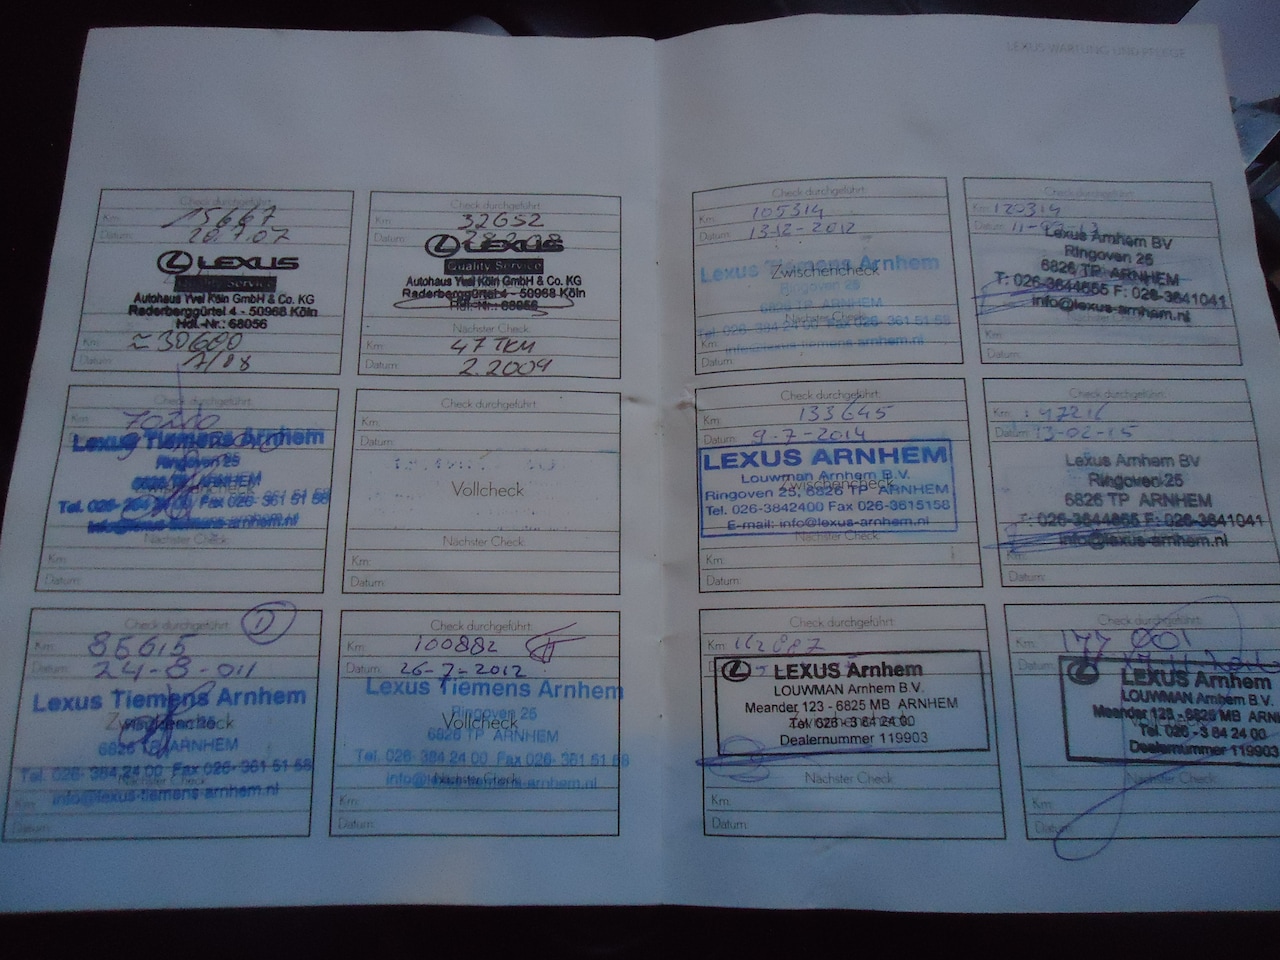 LEXUS WARTUNG UND PFLEGE
Check durchgeführt:
Km: 15667
Datum: 20.7.07
LEXUS
Quality Service
Autohaus Yvel Köln GmbH & Co. KG
Raderberggürtel 4 - 50968 Köln
Hdl.-Nr.: 68056
Km: ≈ 30600
Datum: 7/08
Check durchgeführt:
Km: 32652
Datum:
LEXUS
Quality Service
Autohaus Yvel Köln GmbH & Co. KG
Raderberggürtel 4 - 50968 Köln
Hdl.-Nr.: 68056
Nächster Check:
Km: 47 TKM
Datum: 2.2009
Check durchgeführt:
Km: 105314
Datum: 13-12-2012
Lexus Tiemens Arnhem
Zwischencheck
Ringoven 25
6826 TP ARNHEM
Nächster Check:
Tel. 026-384 24 00 Fax 026-361 51 58
Km:
info@lexus-tiemens-arnhem.nl
Datum:
Check durchgeführt:
Km: 120314
Datum:
Lexus Arnhem BV
Ringoven 25
6826 TP ARNHEM
T: 026-3644655 F: 026-3641041
info@lexus-arnhem.nl
Km:
Datum:
Check durchgeführt:
Km: 70200
Lexus Tiemens Arnhem
Ringoven 25
6826 TP ARNHEM
Tel. 026-384 24 00 Fax 026-361 51 58
info@lexus-tiemens-arnhem.nl
Nächster Check:
Km:
Datum:
Check durchgeführt:
Km:
Datum:
Vollcheck
Nächster Check:
Km:
Datum:
Check durchgeführt:
Km: 133645
Datum: 9-7-2014
LEXUS ARNHEM
Louwman Arnhem B.V.
Zwischencheck
Ringoven 25, 6826 TP ARNHEM
Tel. 026-3842400 Fax 026-3615158
E-mail: info@lexus-arnhem.nl
Nächster Check:
Km:
Datum:
Check durchgeführt:
Km:
Datum: 13-02-15
Lexus Arnhem BV
Ringoven 25
6826 TP ARNHEM
T: 026-3644655 F: 026-3641041
info@lexus-arnhem.nl
Km:
Datum:
Check durchgeführt:
Km: 85615
Datum: 24-8-011
Lexus Tiemens Arnhem
Zwischencheck
Ringoven 25
6826 TP ARNHEM
Tel. 026-384 24 00 Fax 026-361 51 58
Nächster Check:
Km:
info@lexus-tiemens-arnhem.nl
Datum:
Check durchgeführt:
Km: 100882
Datum: 26-7-2012
Lexus Tiemens Arnhem
Ringoven 25
Vollcheck
6826 TP ARNHEM
Tel. 026-384 24 00 Fax 026-361 51 58
Nächster Check:
info@lexus-tiemens-arnhem.nl
Km:
Datum:
Check durchgeführt:
Km: 162887
LEXUS Arnhem
LOUWMAN Arnhem B.V.
Meander 123 - 6825 MB ARNHEM
Tel. 026 - 3 84 24 00
Dealernummer 119903
Nächster Check:
Km:
Datum:
Check durchgeführt:
Km: 177 001
Datum:
LEXUS Arnhem
LOUWMAN Arnhem B.V.
Meander 123 - 6825 MB ARN
Tel. 026 - 3 84 24 00
Dealernummer 119903
Nächster Check:
Km:
Datum: